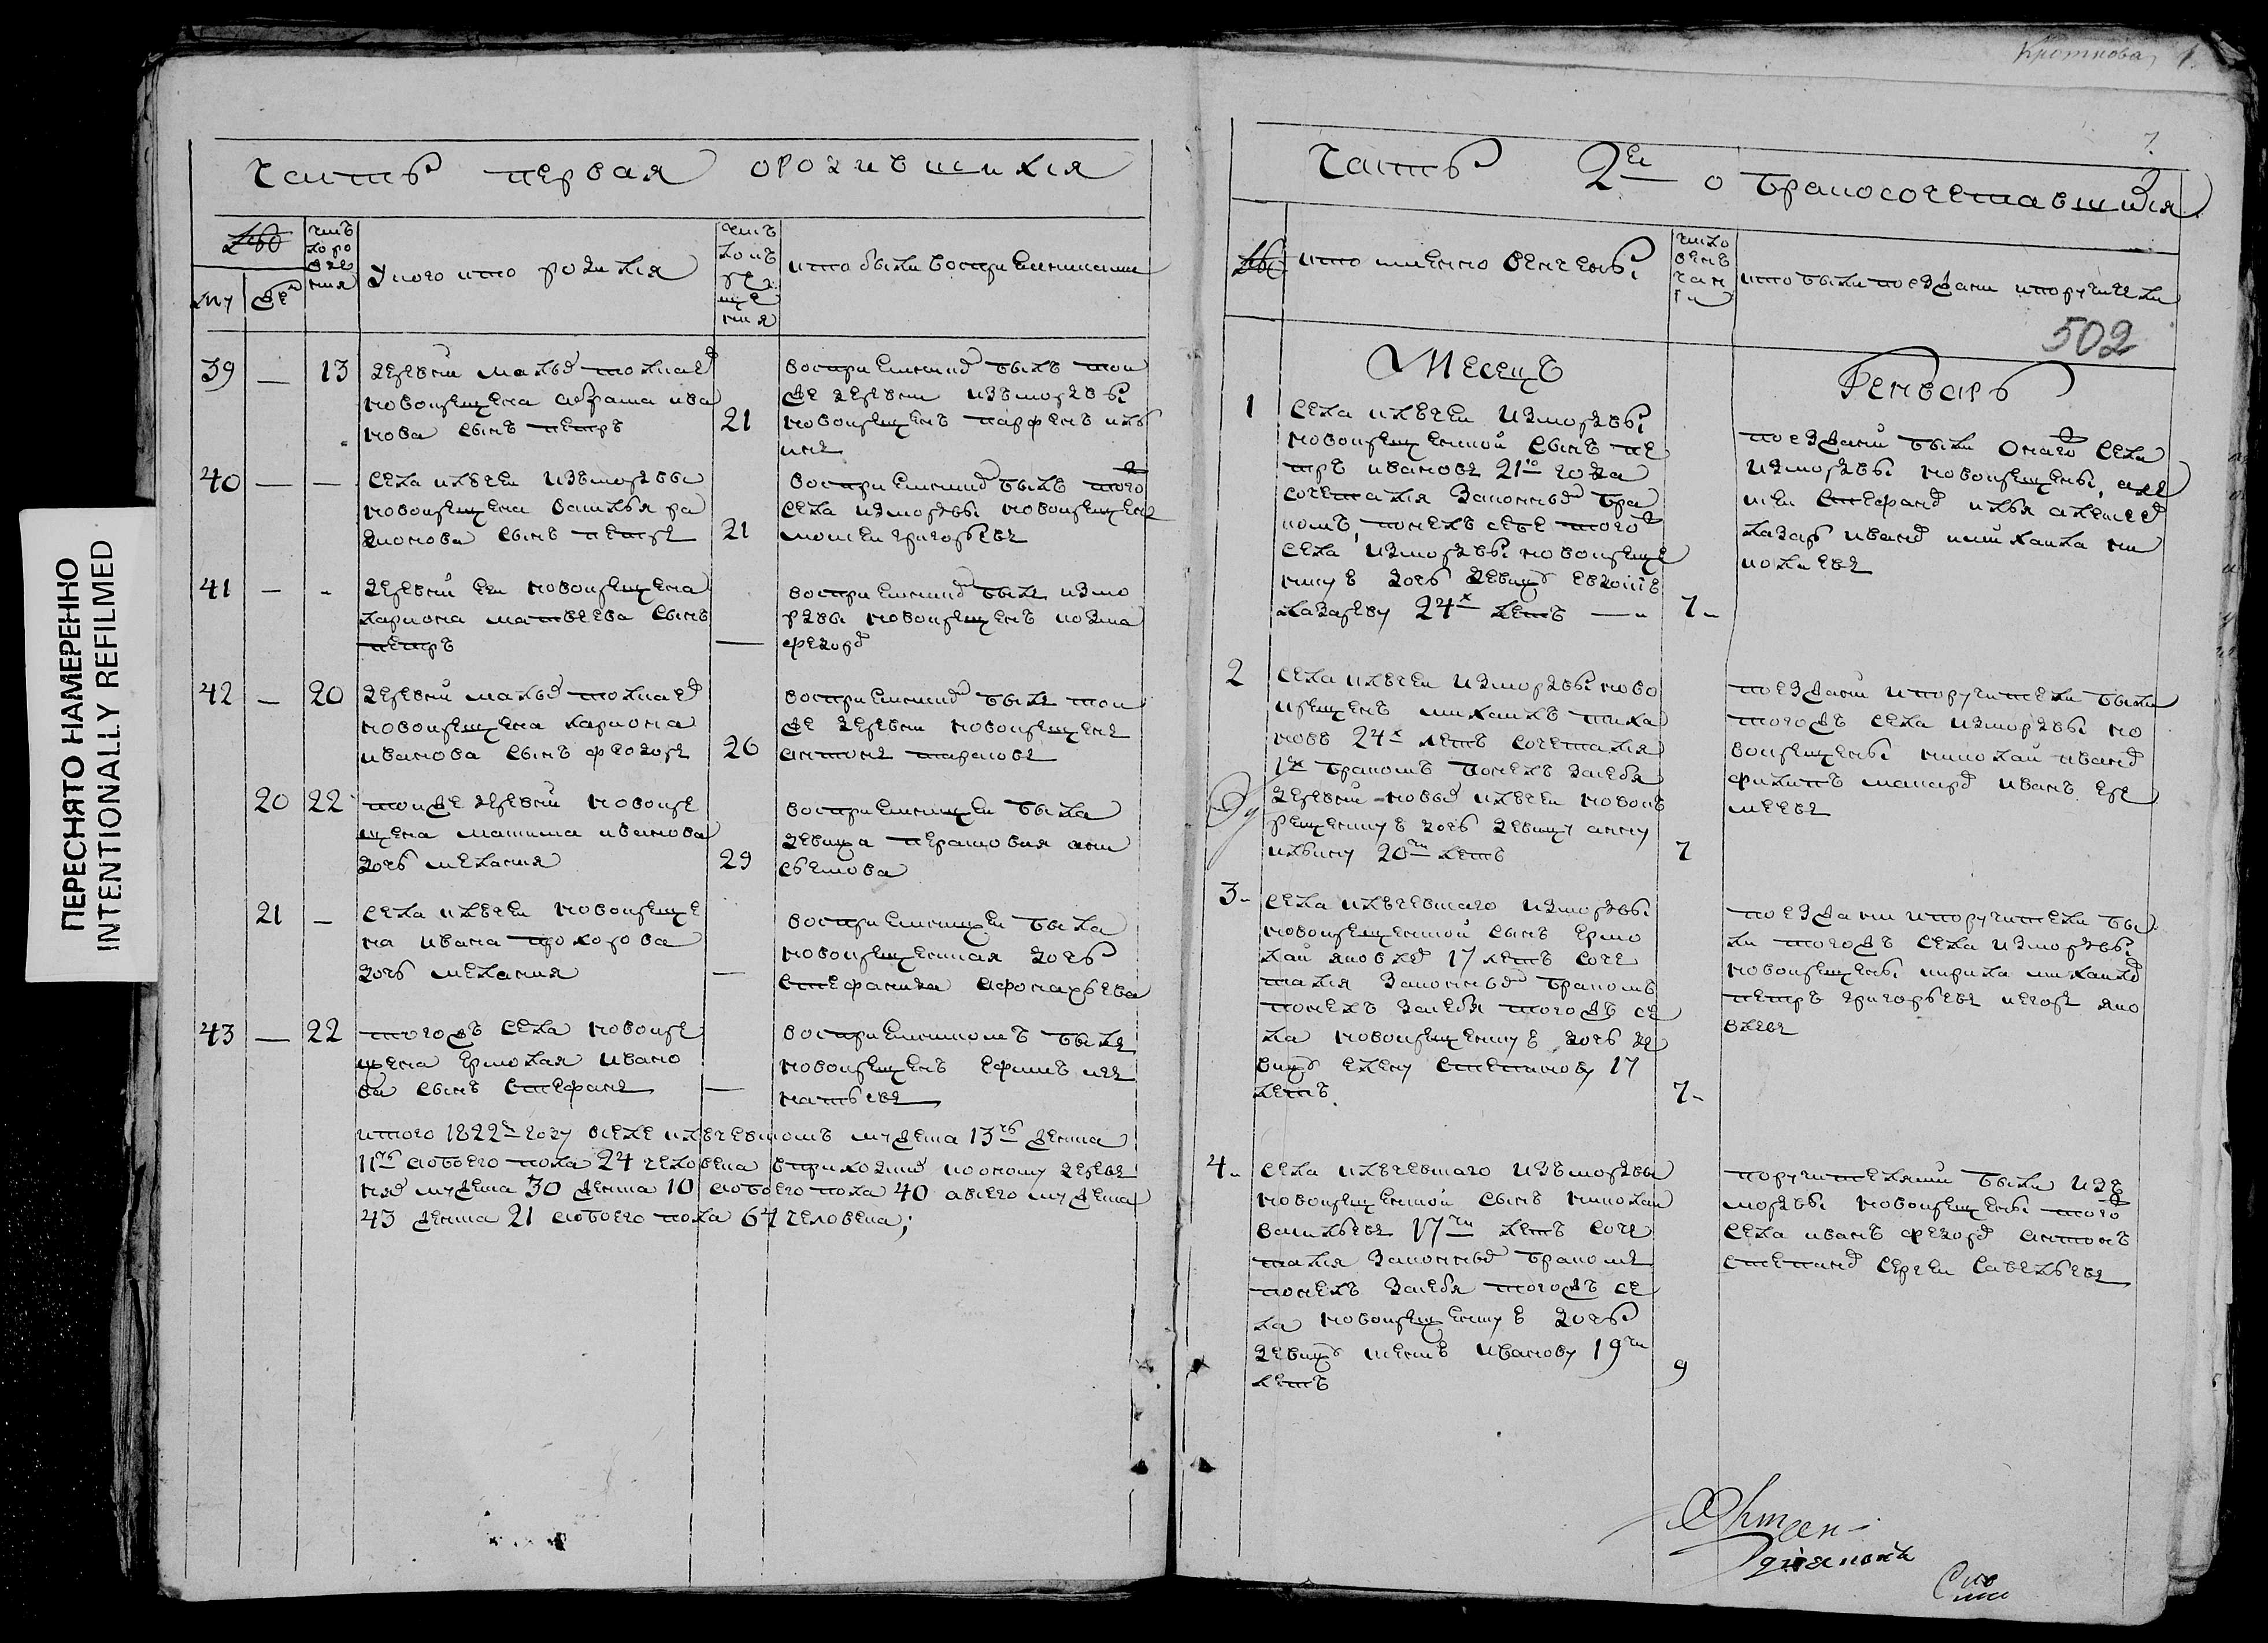 ПЕРЕСНЯТО НАМЕРЕННО
INTENTIONALLY REFILMED
часть первая о родившихся
№
числ
ло ро
жде
ния
У кого кто родился
число
кре
ще
ния
кто были восприемники
му
же
39 — 13
деревни малы толкаев
новокрещена абрама ива
нова сынъ петръ
21
восприемник былъ той
же деревни измордвы
новокрещенъ парфенъ иль
инъ
40 — —
села клвчеи измордвы
новокрещена василья ра
дионова сынъ петръ
21
восприемник былъ того
села измордвы новокрещенъ
мокеи григорьевъ
41 — -
деревни новокрещена
лариона матвеева сынъ
петръ
—
восприемник былъ измо
рдвы новокрещенъ козма
федоров
42 — 20
деревни малы толкаев
новокрещена лариона
иванова сынъ феодоръ
26
восприемник былъ той
же деревни новокрещенъ
антонъ тарасовъ
20 22
той же деревни новокре
щена максима иванова
дочь мелания
29
восприемницеи была
девица
21 —
села клвчеи новокреще
на ивана прохорова
дочь мелания
—
восприемницеи была
новокрещенная дочь
стефанида
43 — 22
тогожъ села новокре
щена ермолая ивано
ва сынъ стефанъ
—
восприемникомъ былъ
новокрещенъ ефимъ игъ
натьевъ
итого 1822 году в селе клвчевкомъ мужеска 13ть женска
11ть обоего пола 24 человека в приходии по оному дерев
ня мужеска 30 женска 10 обоего пола 40 а всего мужеска
43 женска 21 обоего пола 64 человека;
Кроткова 1.
7.
Часть 2ей о бракосочетавшихся
№
кто именно венчены
число
вен
чан
ги
кто были поезжани и поручители
502
Месецъ
Генварь
1
села клвчеи измордвы
новокрещенной сынъ пе
тръ ивановъ 21го года
сочетался законны бра
комъ понелъ себе того
села измордвы новокреще
нку дочь девицу
лазареву 24х летъ —
7-
поезжани были онаго села
измордвы новокрещены, але
ксеи стефанов илья алексеев
лазарь иванов михаила ни
колаевъ
2
села клвчеи измордвы ново
крещенъ михаилъ тиха
новъ 24х летъ сочетался
1м бракомъ понелъ за себя
деревни новы клвчеи новокъ
рещенку дочь девицу анну
ильину 20ти летъ
7
поезжани и поручители были
тогожъ села измордвы но
вокрещены николай иванов
филипъ макаров иванъ ере
меевъ
3-
села клвчевкаго измордвы
новокрещенной сынъ ермо
лай яковлев 17 летъ соче
тался законны бракомъ
понелъ за себя тогожъ се
ла новокрещенку дочь де
вицу елену степанову 17
летъ
7-
поезжани и поручители бы
ли тогожъ села измордвы
новокрещены кирила михаилов
петръ григорьевъ и егоръ яко
влевъ
4-
села клвчевкаго измордвы
новокрещенной сынъ николаи
васильевъ 17ти летъ соче
тался законны бракомъ
понелъ за себя тогожъ се
ла новокрещенку дочь
девицу иванову 19ти
летъ
9
поручителями были изъ
мордвы новокрещены того
села иванъ федоров антонъ
степанов сергеи савельевъ